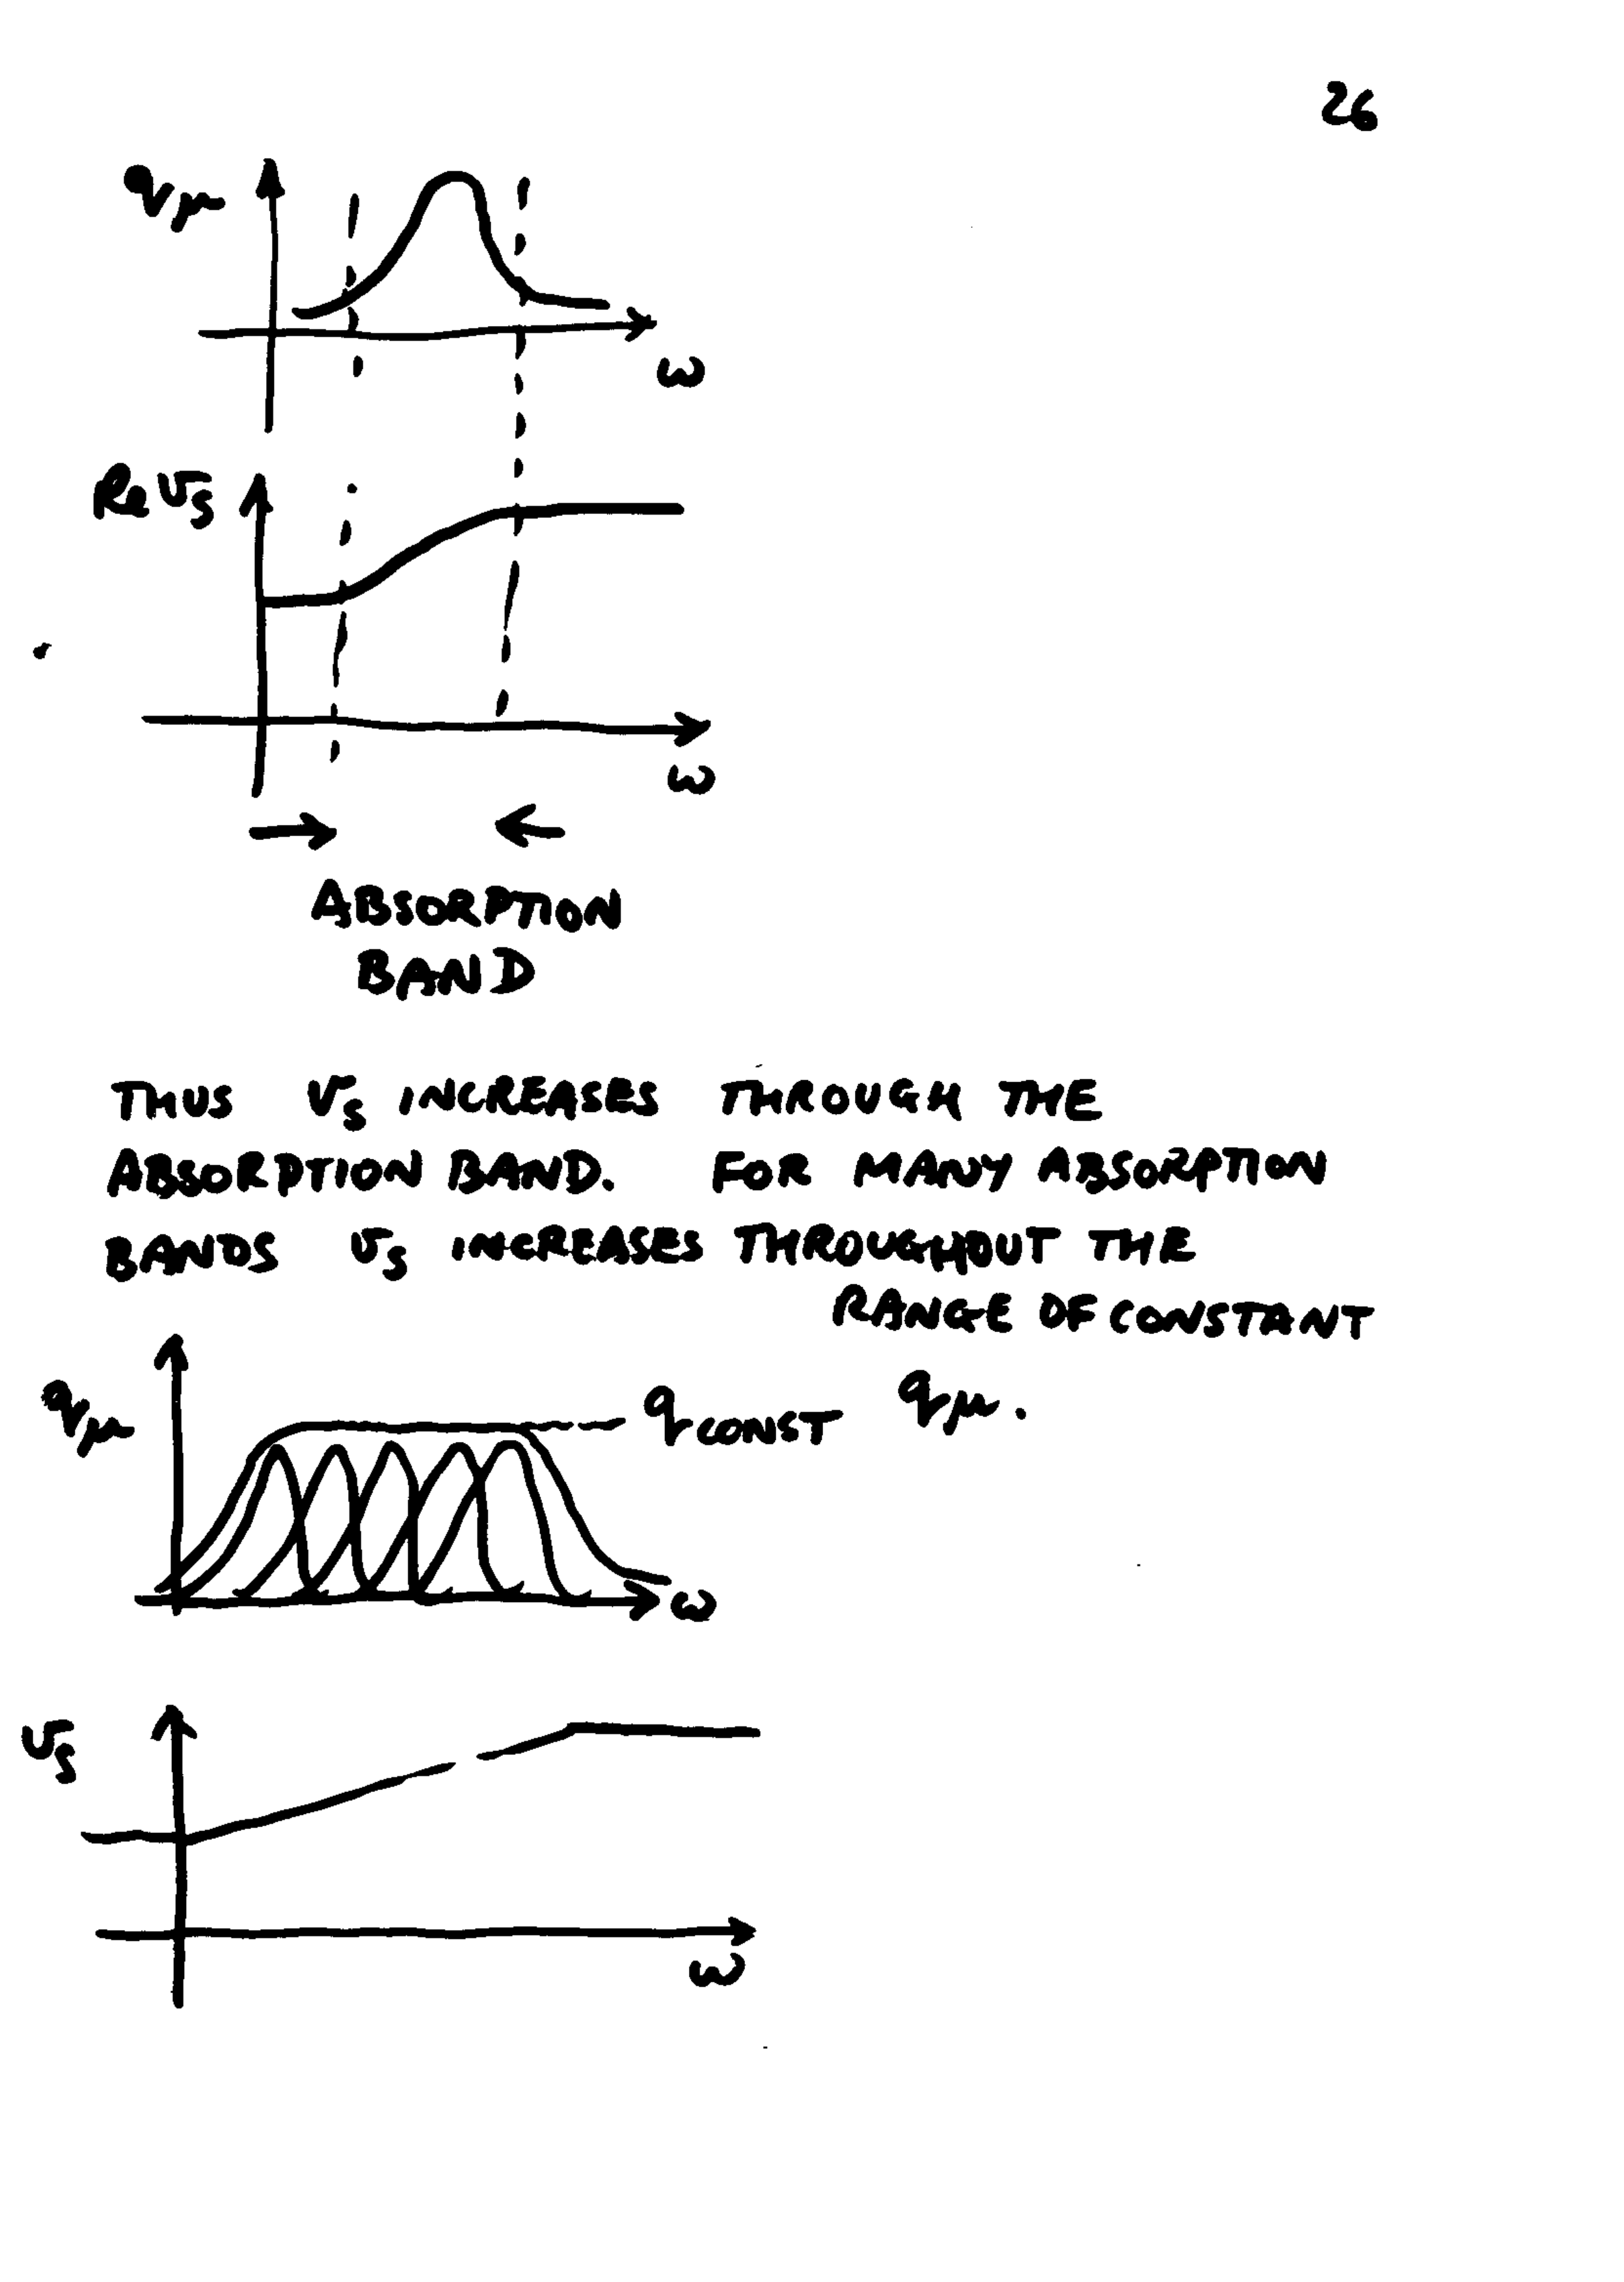 26
qμ
ω
Re υs
ω
ABSORPTION
BAND
THUS υs INCREASES THROUGH THE
ABSORPTION BAND. FOR MANY ABSORPTION
BANDS υs INCREASES THROUGHOUT THE
RANGE OF CONSTANT
qμ.
qμ
q CONST
ω
υs
ω